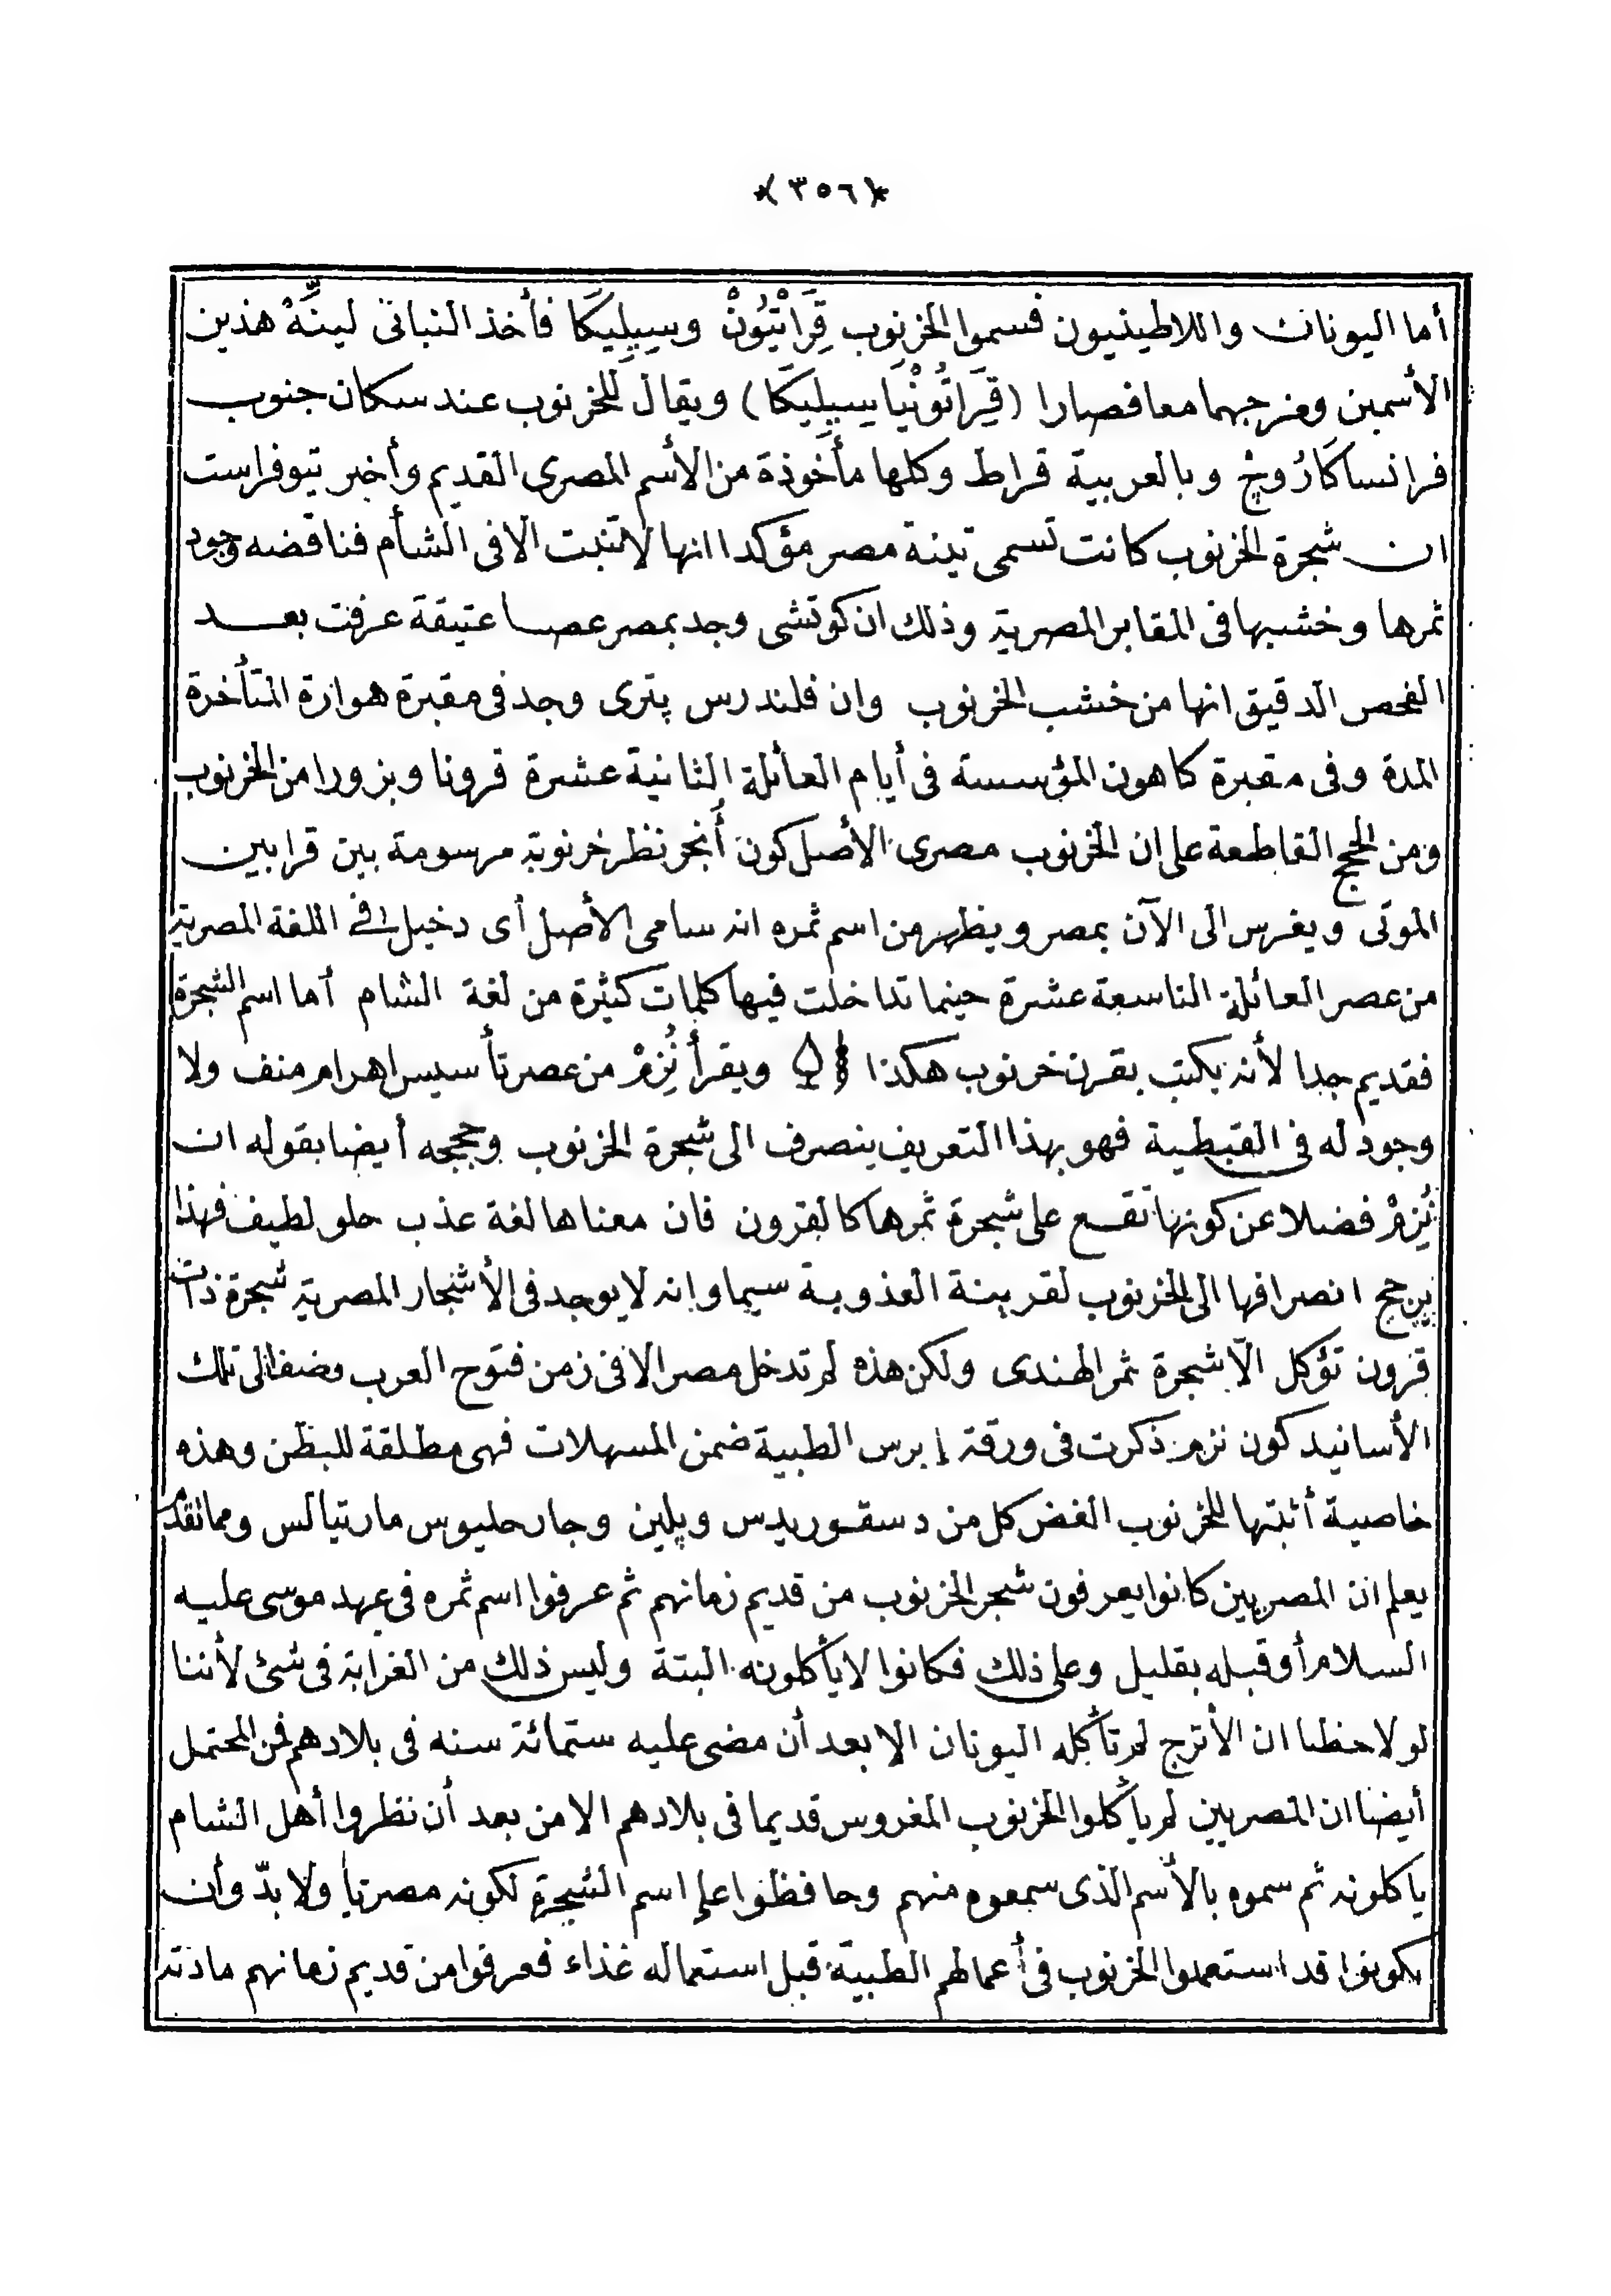 *(٣٥٦)*
أما اليونان واللاطينيون فسموا الخرنوب قِرَاتْيُونْ وسِيلِيكَا فأخذ النباتى لينِّهْ هذين
الأسمين ومزجهما معا فصارا (قِيرَاتُونْيَا سِيلِيكَا) ويقال للخرنوب عند سكان جنوب
فرانسا كَارُوچْ وبالعربية قراط وكلها مأخوذة من الأسم المصرى القديم وأخبر تيوفراست
ان شجرة الخرنوب كانت تسمى تينة مصر مؤكدا انها لا تنبت الا فى الشأم فناقضه وجود
ثمرها وخشبها فى المقابر المصرية وذلك ان كوتشى وجد بمصر عصا عتيقة عرفت بعد
الفحص الدقيق انها من خشب الخرنوب وان فلندرس پترى وجد فى مقبرة هوارة المتأخرة
المدة وفى مقبرة كاهون المؤسسة فى أيام العائلة الثانية عشرة قرونا وبزورا من الخرنوب
ومن الحجج القاطعة على ان الخرنوب مصرى الأصل كون أنجر نظر خرنوبة مرسومة بين قرابين
الموتى ويغرس الى الآن بمصر ويظهر من اسم ثمره انه سامى الأصل أى دخيل فى اللغة المصرية
من عصر العائلة التاسعة عشرة حينما تداخلت فيها كلمات كثيرة من لغة الشام أما اسم الشجرة
فقديم جدا لأنه يكتب بقرن خرنوب هكذا ويقرأ نُزِمْ من عصر تأسيس اهرام منف ولا
وجود له فى القبطية فهو بهذا التعريف ينصرف الى شجرة الخرنوب وحججه أيضا بقوله ان
نُزِمْ فضلا عن كونها تقع على شجرة ثمرها كالقرون فان معناها لغة عذب حلو لطيف فهذا
يرجح انصرافها الى الخرنوب لقرينة العذوبة سيما وانه لا يوجد فى الأشجار المصرية شجرة ذات
قرون تؤكل الّا شجرة ثمر الهندى ولكن هذه لم تدخل مصر الا فى زمن فتوح العرب وضف الى تلك
الأسانيد كون نزم ذكرت فى ورقة إبرس الطبية ضمن المسهلات فهى مطلقة للبطن وهذه
خاصية أثبتها للخرنوب الغض كل من دسقوريدس وپلين وجارحليوس مارتيالس ومما تقدم
يعلم ان المصريين كانوا يعرفون شجر الخرنوب من قديم زمانهم ثم عرفوا اسم ثمره فى عهد موسى عليه
السلام أو قبله بقليل وعلى ذلك فكانوا لا يأكلونه البتة وليس ذلك من الغرابة فى شئ لأننا
لو لاحظنا ان الأترج لم تأكله اليونان الا بعد أن مضى عليه ستمائة سنه فى بلادهم فمن المحتمل
أيضا ان المصريين لم يأكلوا الخرنوب المغروس قديما فى بلادهم الا من بعد أن نظروا أهل الشام
ياكلونه ثم سموه بالأسم الذى سمعوه منهم وحافظوا على اسم الشجرة لكونه مصريا ولا بدّ وأن
يكونوا قد استعملوا الخرنوب فى أعمالهم الطبية قبل استعماله غذاء فعرفوا من قديم زمانهم مادته